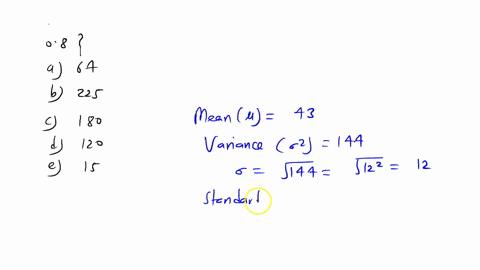 0.8 }
a) 64
b) 225
c) 180
d) 120
e) 15
Mean (μ) = 43
Variance (σ²) = 144
σ = √144 = √12² = 12
Standard